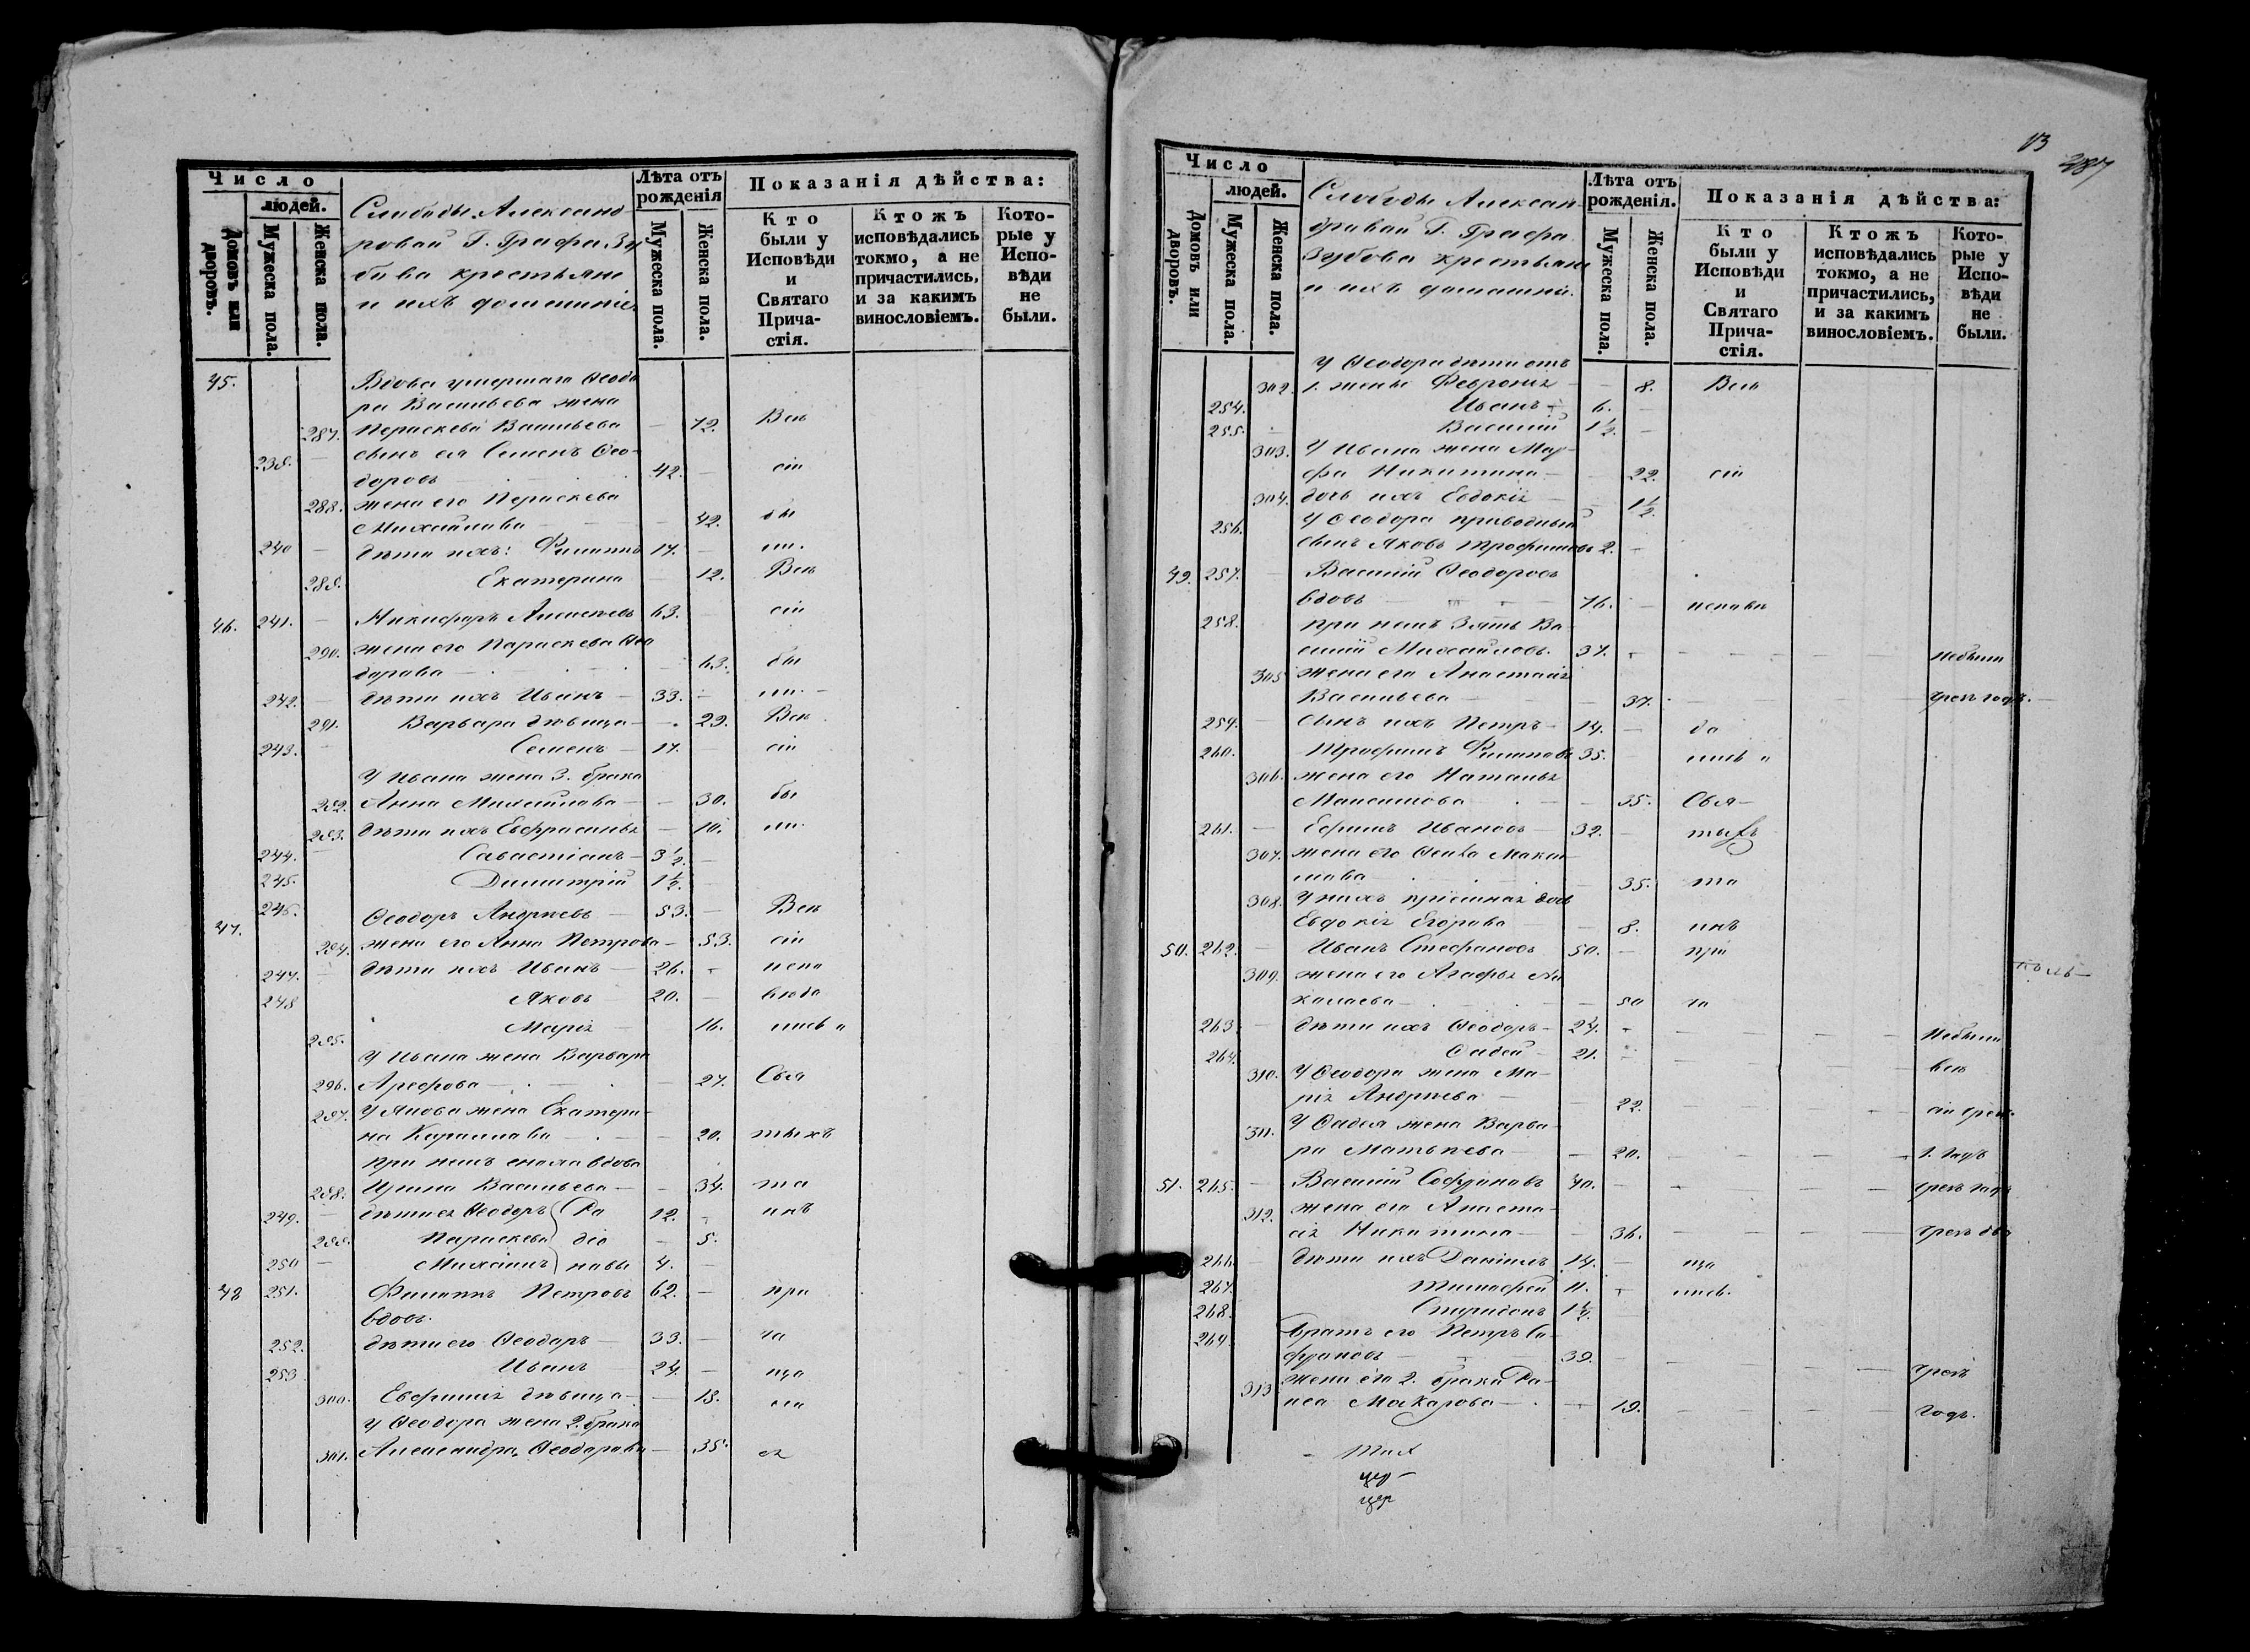 Число
людей.
Домовъ или дворовъ.
Мужеска пола.
Женска пола.
Слободы Александ
ровой Г. Графа Зу
бова крестьяне
и ихъ домашніе
Лѣта отъ рожденія
Мужеска пола.
Женска пола.
Показанія дѣйства:
Кто были у Исповѣди и Святаго Причастія.
Ктожъ исповѣдались токмо, а не причастились, и за какимъ винословіемъ.
Которые у Исповѣди не были.
45. Вдова умершаго Ѳеодо
ра Васильева жена
287. Параскева Васильева — 72. Вси
239. — сынъ ея Семенъ Ѳео-
доровъ 42. — сіи
288. жена его Параскева
Михайлова — 42. бы
240 — дѣти ихъ: Филиппъ 17. — ли.
289. Екатерина — 12. Вси
46. 241. — Никифоръ Алексѣевъ 63. — сіи
290. жена его Параскева Ѳео
дорова — 63. бы
242. — дѣти ихъ Иванъ — 33. ли. —
291. Варвара дѣвица — 29. Вси
243. Семенъ — 17. сіи
У Ивана жена 3. брака
292. Анна Михайлова — 30. бы
293. дѣти ихъ Евфросинья — 10. ли.
244. Савастіанъ — 3 1/2. —
245. Димитрій 1 1/2. —
47. 246. Ѳеодоръ Андреевъ — 53. — Вси
294. жена его Анна Петрова — 53. сіи
247. — дѣти ихъ Иванъ — 26. испо
248 Яковъ 20. — вѣда
295. Марія 16. лись "
У Ивана жена Варвара
296. Арефова — 27. Свя
297. У Якова жена Екатери-
на Кирилова — 20. тыхъ
При немъ сноха вдова
298. Ирина Васильева — 34. та
249. — дѣти ея Ѳеодоръ Ра 12. инъ
299. Параскева діо — 5.
250 — Михаилъ новы 4. —
48 251. Филиппъ Петровъ 62. — при
вдовъ.
252. дѣти его Ѳеодоръ — 33. — ча
253 Иванъ 24. — ща
300. Евфимія дѣвица — 18.
У Ѳеодора жена 2. брака
301. Александра Ѳеодорова — 35. ся
113
287
Число
людей.
Домовъ или дворовъ.
Мужеска пола.
Женска пола.
Слободы Алексан-
дровой Г. Графа
Зубова крестьяне
и ихъ домашніе.
Лѣта отъ рожденія.
Мужеска пола.
Женска пола.
Показанія дѣйства:
Кто были у Исповѣди и Святаго Причастія.
Ктожъ исповѣдались токмо, а не причастились, и за какимъ винословіемъ.
Которые у Исповѣди не были.
У Ѳеодора дѣти отъ
302. 1. жены Февронія — 8. Вси
254. Иванъ 6. —
255. Василій 1 1/2. —
303. У Ивана жена Мар-
фа Никитина — 22. сіи
304. дочь ихъ Евдокія — 1 1/2.
256. У Ѳеодора приводный
сынъ Яковъ Трофимовъ 2. —
49. 257. — Василій Ѳеодоровъ
вдовъ — 76. — исповѣ
258. При немъ зять Ва-
силій Михайловъ. 37. — небыли
305 жена его Анастасія
Васильева — 37. — чрезъ годъ. —
259. — сынъ ихъ Петръ — 14. — да
260. Трофимъ Филиповъ 35. лись "
306. жена его Наталья
Максимова — 35. Свя —
261. — Ефимъ Ивановъ — 32. — тыхъ
307. жена его Ѳекла Макси-
мова 35. та
308. У нихъ пріемная дочь
Евдокія Егорова — 8. инъ
50. 262. — Иванъ Стефановъ 50. — при
309. жена его Агафья Ни
колаева — 50 ча
263. — дѣти ихъ Ѳеодоръ — 24. — Небыли
264. Фадей 21. — вси
310. У Ѳеодора жена Ма-
рія Андреева — 22. — сіи чрезъ
311. У Фадея жена Варва-
ра Матвѣева — 20. — 1. годъ
51. 265. — Василій Софроновъ 40. — чрезъ годъ
312. жена его Анаста-
сія Никитина — 36. — чрезъ два
266. — дѣти ихъ Даніилъ 14. — ща
267. Тимофей 11. лись.
268. Спиридонъ 1 1/2. —
269. братъ его Петръ Со
фроновъ 39. — чрезъ
313 жена его 2. брака Ра-
иса Макарова — 19. — годъ.